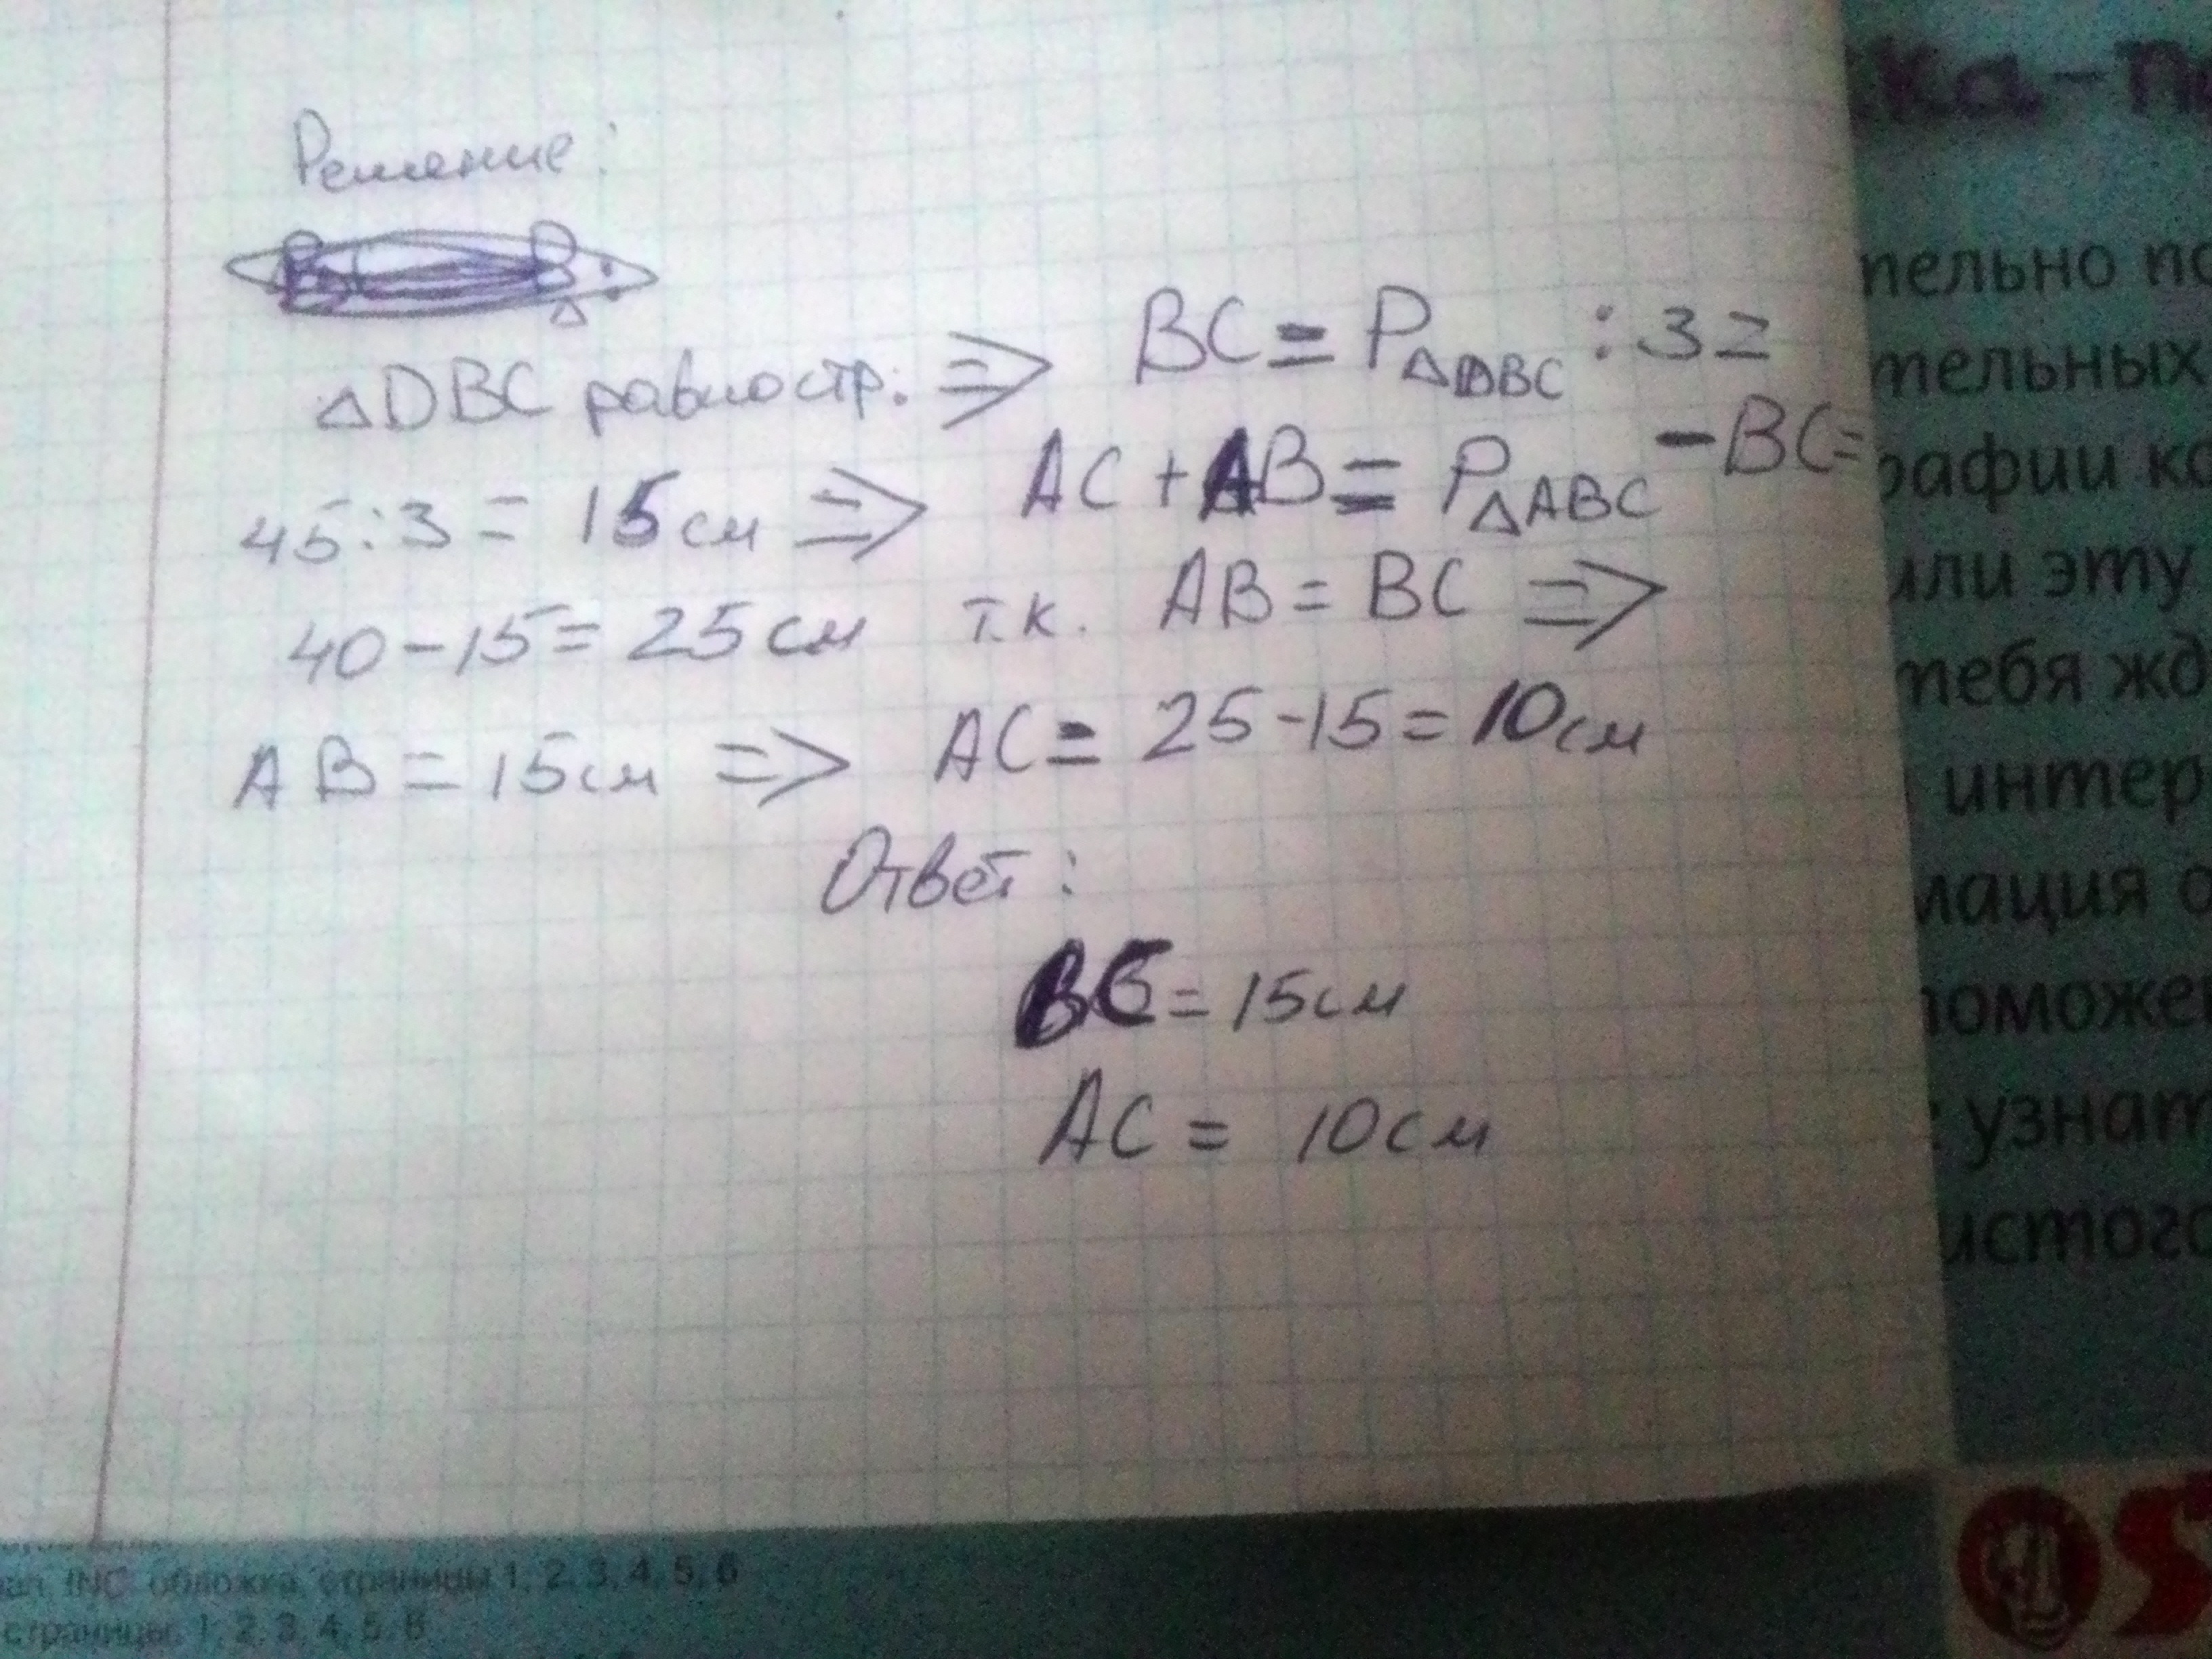 Решение:
△DBC равностр. => BC = P△DBC : 3 =
45 : 3 = 15 см => AC + AB = P△ABC - BC =
40 - 15 = 25 см т.к. AB = BC =>
AB = 15 см => AC = 25 - 15 = 10 см
Ответ:
BC = 15 см
AC = 10 см
ка-п
тельно по
тельных
рафии ко
или эту
тебя жд
интер
мация о
поможе
узнат
истого
INC обложка, страницы 1, 2, 3, 4, 5, 6
страницы: 1, 2, 3, 4, 5, 6